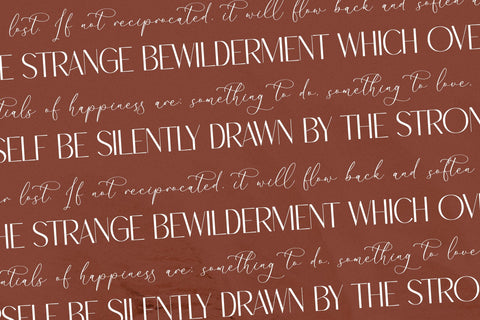 lost. If not reciprocated, it will flow back and soften
E STRANGE BEWILDERMENT WHICH OVE
ntials of happiness are: something to do, something to love,
SELF BE SILENTLY DRAWN BY THE STRON
r lost. If not reciprocated, it will flow back and soften
HE STRANGE BEWILDERMENT WHICH OV
ntials of happiness are: something to do, something to love
RSELF BE SILENTLY DRAWN BY THE STRO